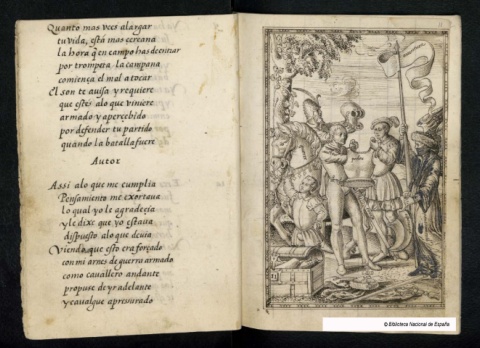 Quanto mas vees alargar
tu vida, está mas cercana
la hora q̃ en campo has de entrar
por trompeta la campana
comiença el mal a tocar
El son te auisa y requiere
que estés alo que viniere
armado y apercebido
por defender tu partido
quando la batalla fuere
Autor
Assi alo que me cumplia
Pensamiento me exortaua
lo qual yo le agradecia
y le dixe que yo estaua
dispuesto alo que deuia
Viendo que esto era forçado
con mi arnes de guerra armado
como cauallero andante
propuse de yr adelante
y caualgue apresurado
© Biblioteca Nacional de España